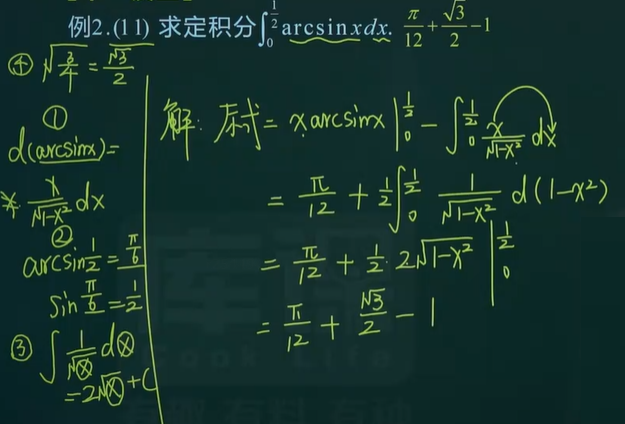 例2.(11) 求定积分∫₀^(1/2) arcsin x dx. π/12 + √3/2 − 1
④ √(3/4) = √3/2
①
d(arcsinx) =
x/√(1-x²) dx
②
arcsin 1/2 = π/6
sin π/6 = 1/2
③ ∫ 1/√x dx
= 2√x + C
解: 原式 = x arcsinx |₀^(1/2) − ∫₀^(1/2) x/√(1-x²) dx
= π/12 + 1/2 ∫₀^(1/2) 1/√(1-x²) d(1-x²)
= π/12 + 1/2 · 2√(1-x²) |₀^(1/2)
= π/12 + √3/2 − 1